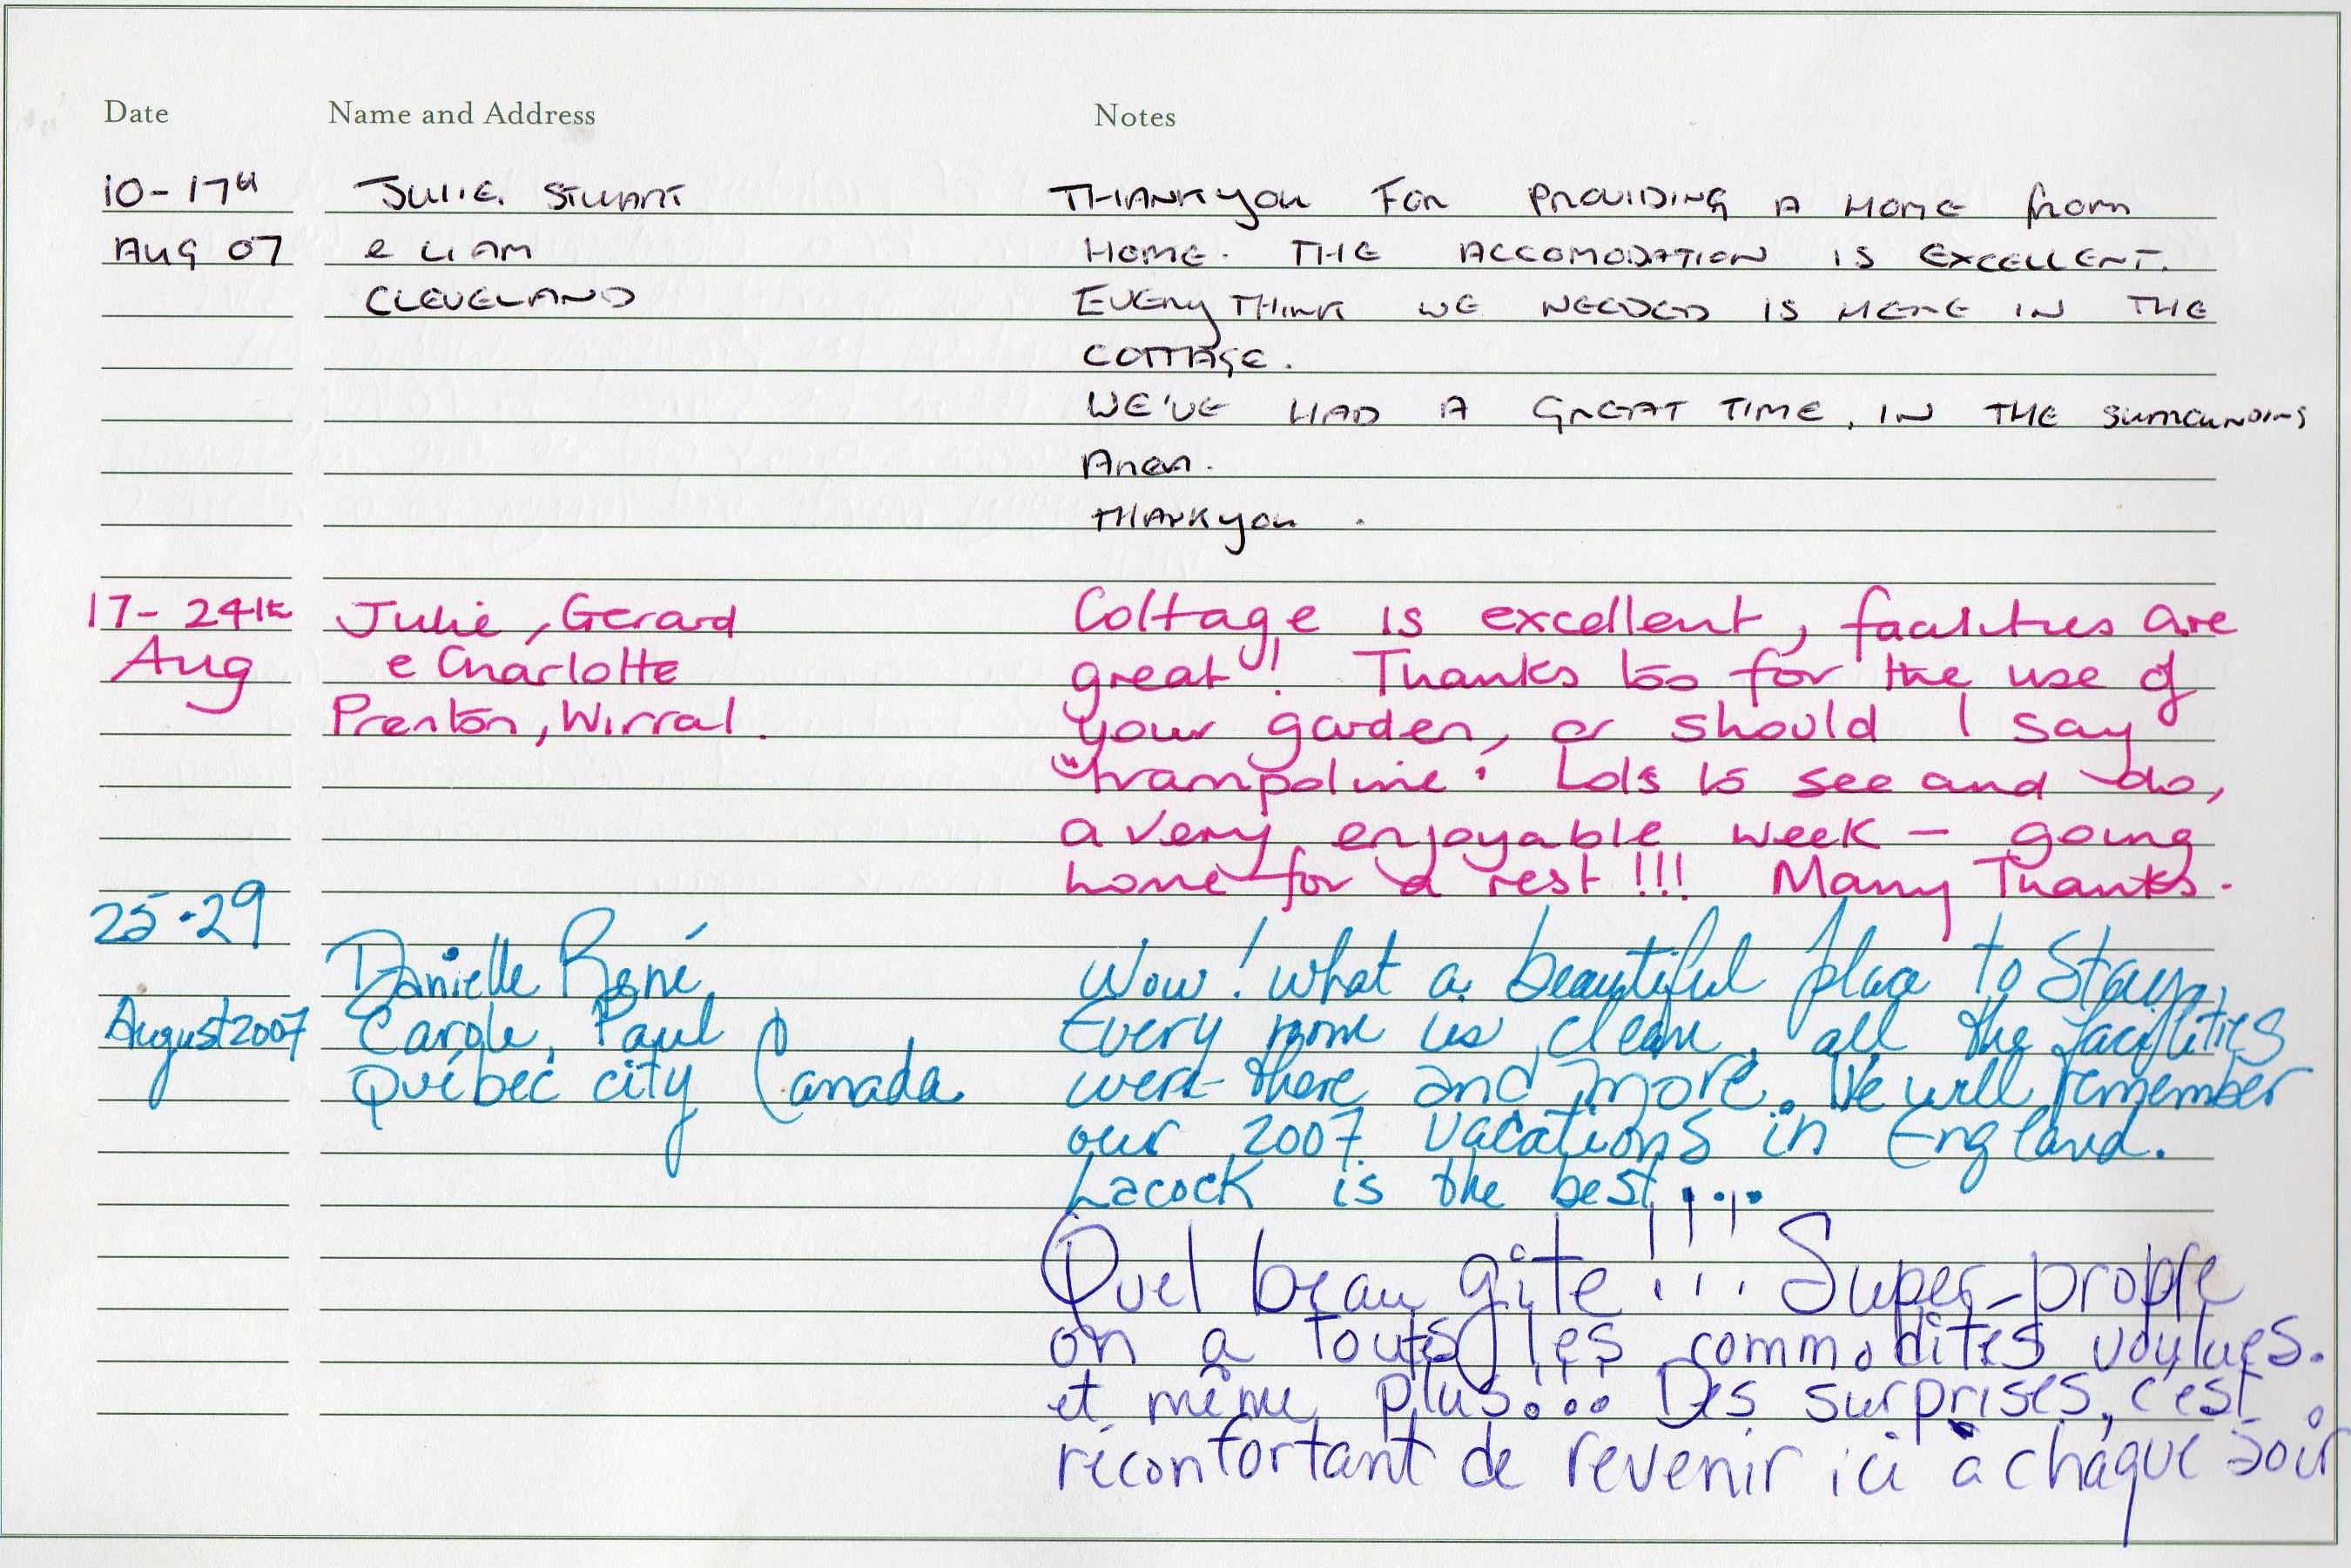 Date Name and Address Notes
10-17th JULIE. STUART THANKyou FOR PROVIDING A HOME from
AUG 07 & LIAM HOME. THE ACCOMODATION IS EXCELLENT.
CLEVELAND EVERYTHINK WE NEEDED IS HERE IN THE
COTTAGE.
WE'VE HAD A GREAT TIME, IN THE SURROUNDING
AREA.
THANKyou.
17-24th Julie, Gerard Cottage is excellent, facilities are
Aug & Charlotte great! Thanks too for the use of
Prenton, Wirral. your garden, or should I say
"trampoline". Lots to see and do,
a very enjoyable week – going
home for a rest!!! Many Thanks.
25-29
Danielle René, Wow! What a beautiful place to Stay,
August 2007 Carole, Paul Every room is clean, all the facilities
Québec city Canada were there and more. We will remember
our 2007 vacations in England.
Lacock is the best!...
Quel beau gîte!!! Super-propre
on a toutes les commodités voulues.
et même plus... Des surprises, c'est
réconfortant de revenir ici à chaque soir